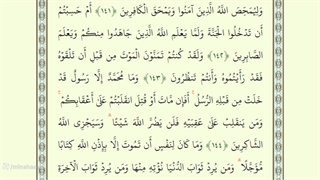 وَلِيُمَحِّصَ اللَّهُ الَّذِينَ آمَنُوا وَيَمْحَقَ الْكَافِرِينَ ﴿١٤١﴾ أَمْ حَسِبْتُمْ
أَن تَدْخُلُوا الْجَنَّةَ وَلَمَّا يَعْلَمِ اللَّهُ الَّذِينَ جَاهَدُوا مِنكُمْ وَيَعْلَمَ
الصَّابِرِينَ ﴿١٤٢﴾ وَلَقَدْ كُنتُمْ تَمَنَّوْنَ الْمَوْتَ مِن قَبْلِ أَن تَلْقَوْهُ
فَقَدْ رَأَيْتُمُوهُ وَأَنتُمْ تَنظُرُونَ ﴿١٤٣﴾ وَمَا مُحَمَّدٌ إِلَّا رَسُولٌ قَدْ
خَلَتْ مِن قَبْلِهِ الرُّسُلُ أَفَإِن مَّاتَ أَوْ قُتِلَ انقَلَبْتُمْ عَلَى أَعْقَابِكُمْ
وَمَن يَنقَلِبْ عَلَى عَقِبَيْهِ فَلَن يَضُرَّ اللَّهَ شَيْئًا وَسَيَجْزِي اللَّهُ
الشَّاكِرِينَ ﴿١٤٤﴾ وَمَا كَانَ لِنَفْسٍ أَن تَمُوتَ إِلَّا بِإِذْنِ اللَّهِ كِتَابًا
مُّؤَجَّلًا وَمَن يُرِدْ ثَوَابَ الدُّنْيَا نُؤْتِهِ مِنْهَا وَمَن يُرِدْ ثَوَابَ الْآخِرَةِ